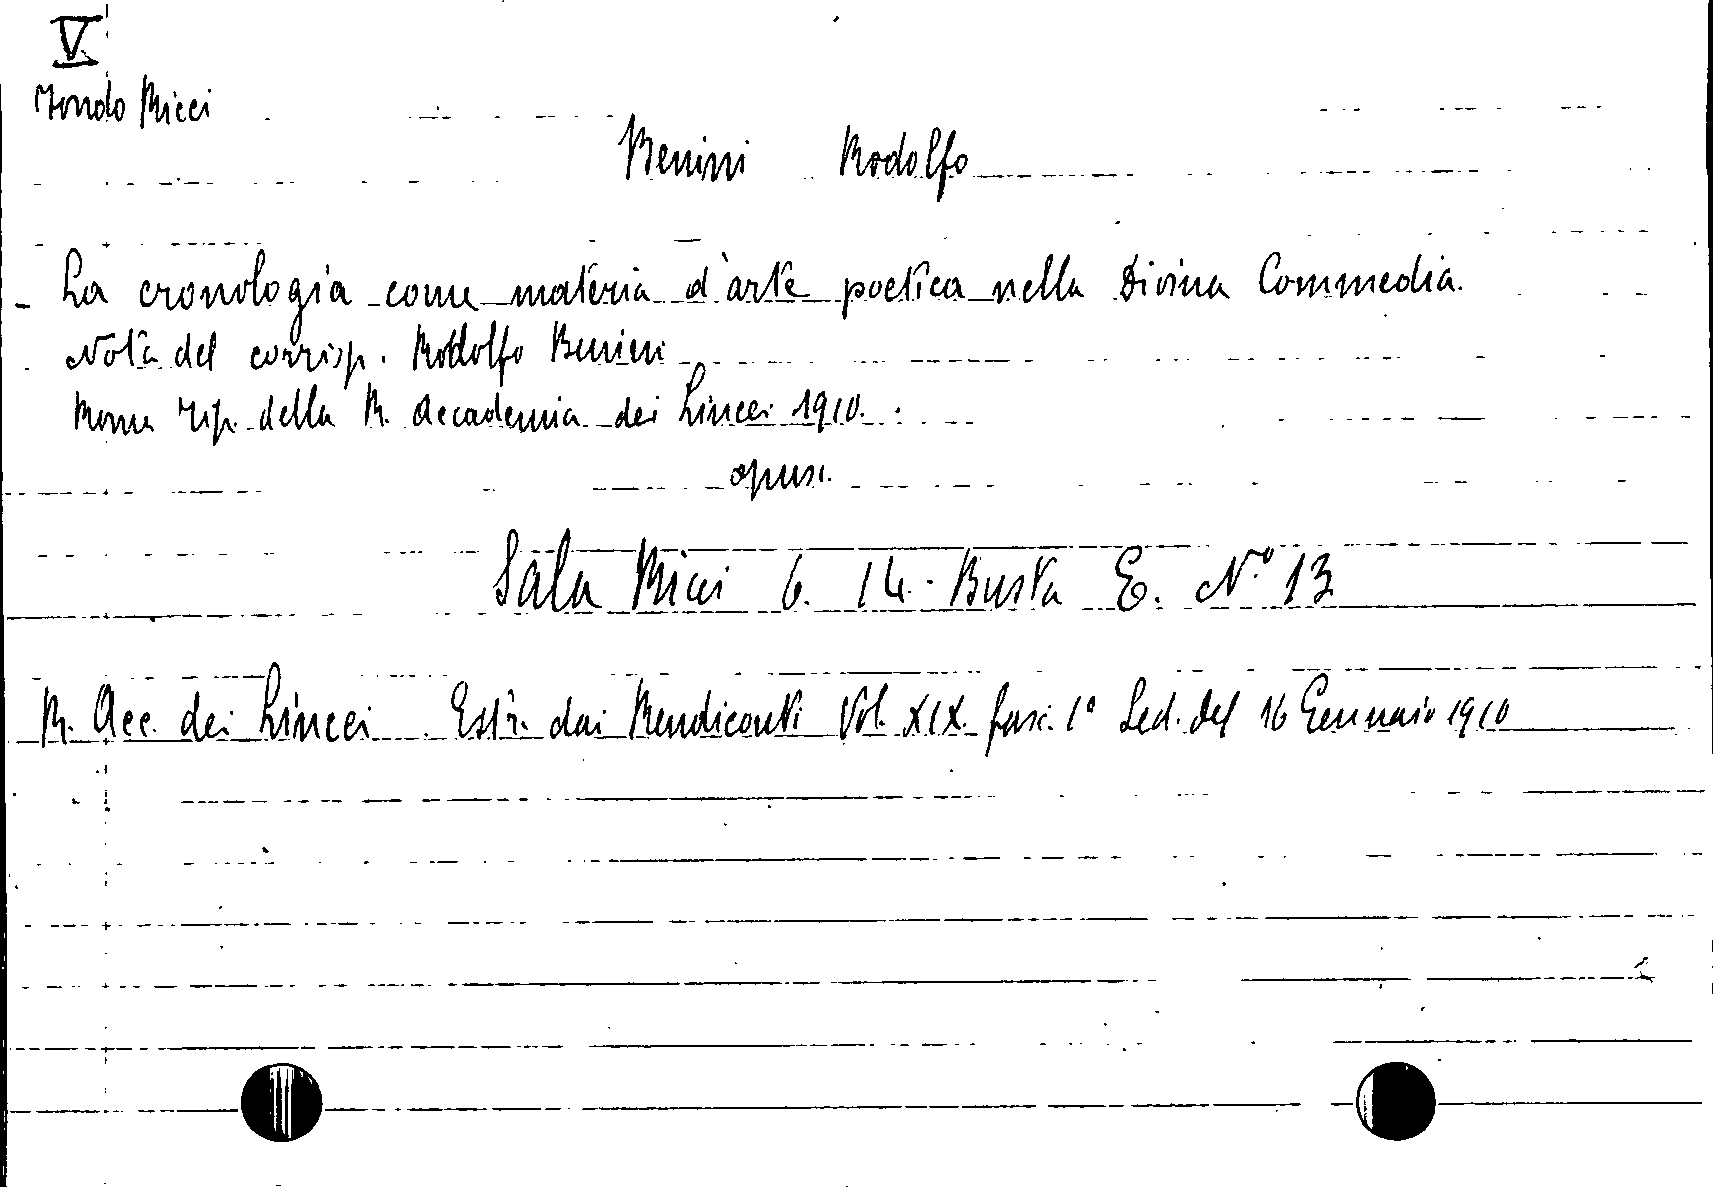 V
Fondo Ricci
Benini Rodolfo
- La cronologia come materia d'arte poetica nella Divina Commedia.
Nota del corrisp. Rodolfo Benini
Roma Tip. della R. Accademia dei Lincei 1910.
opusc.
Sala Ricci 6. 14. Busta E. N.° 13
R. Acc. dei Lincei Estr. dai Rendiconti Vol. XIX. fasc. 1° Sed. del 16 Gennaio 1910